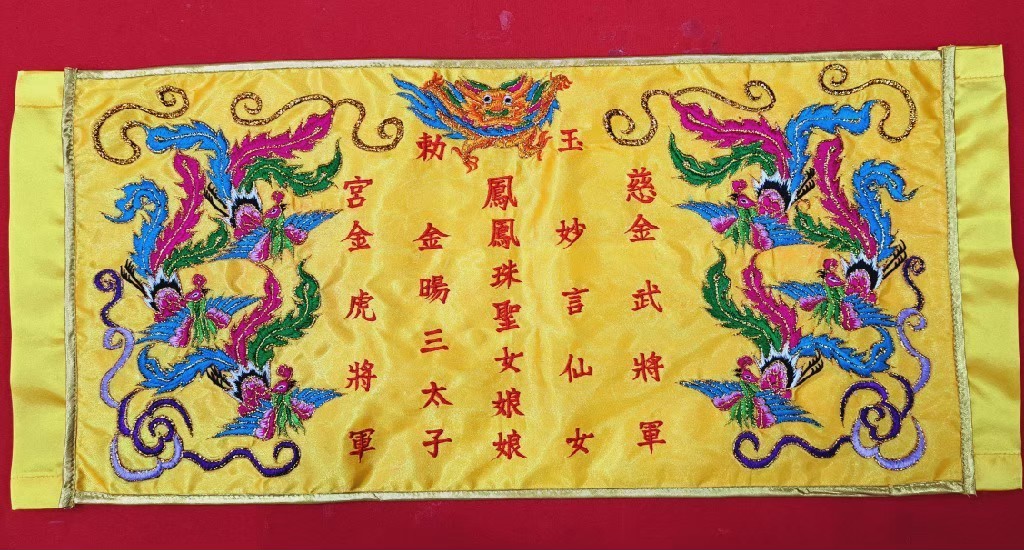 慈金武將軍
玉妙言仙女
鳳鳳珠聖女娘娘
勅金暘三太子
宮金虎將軍